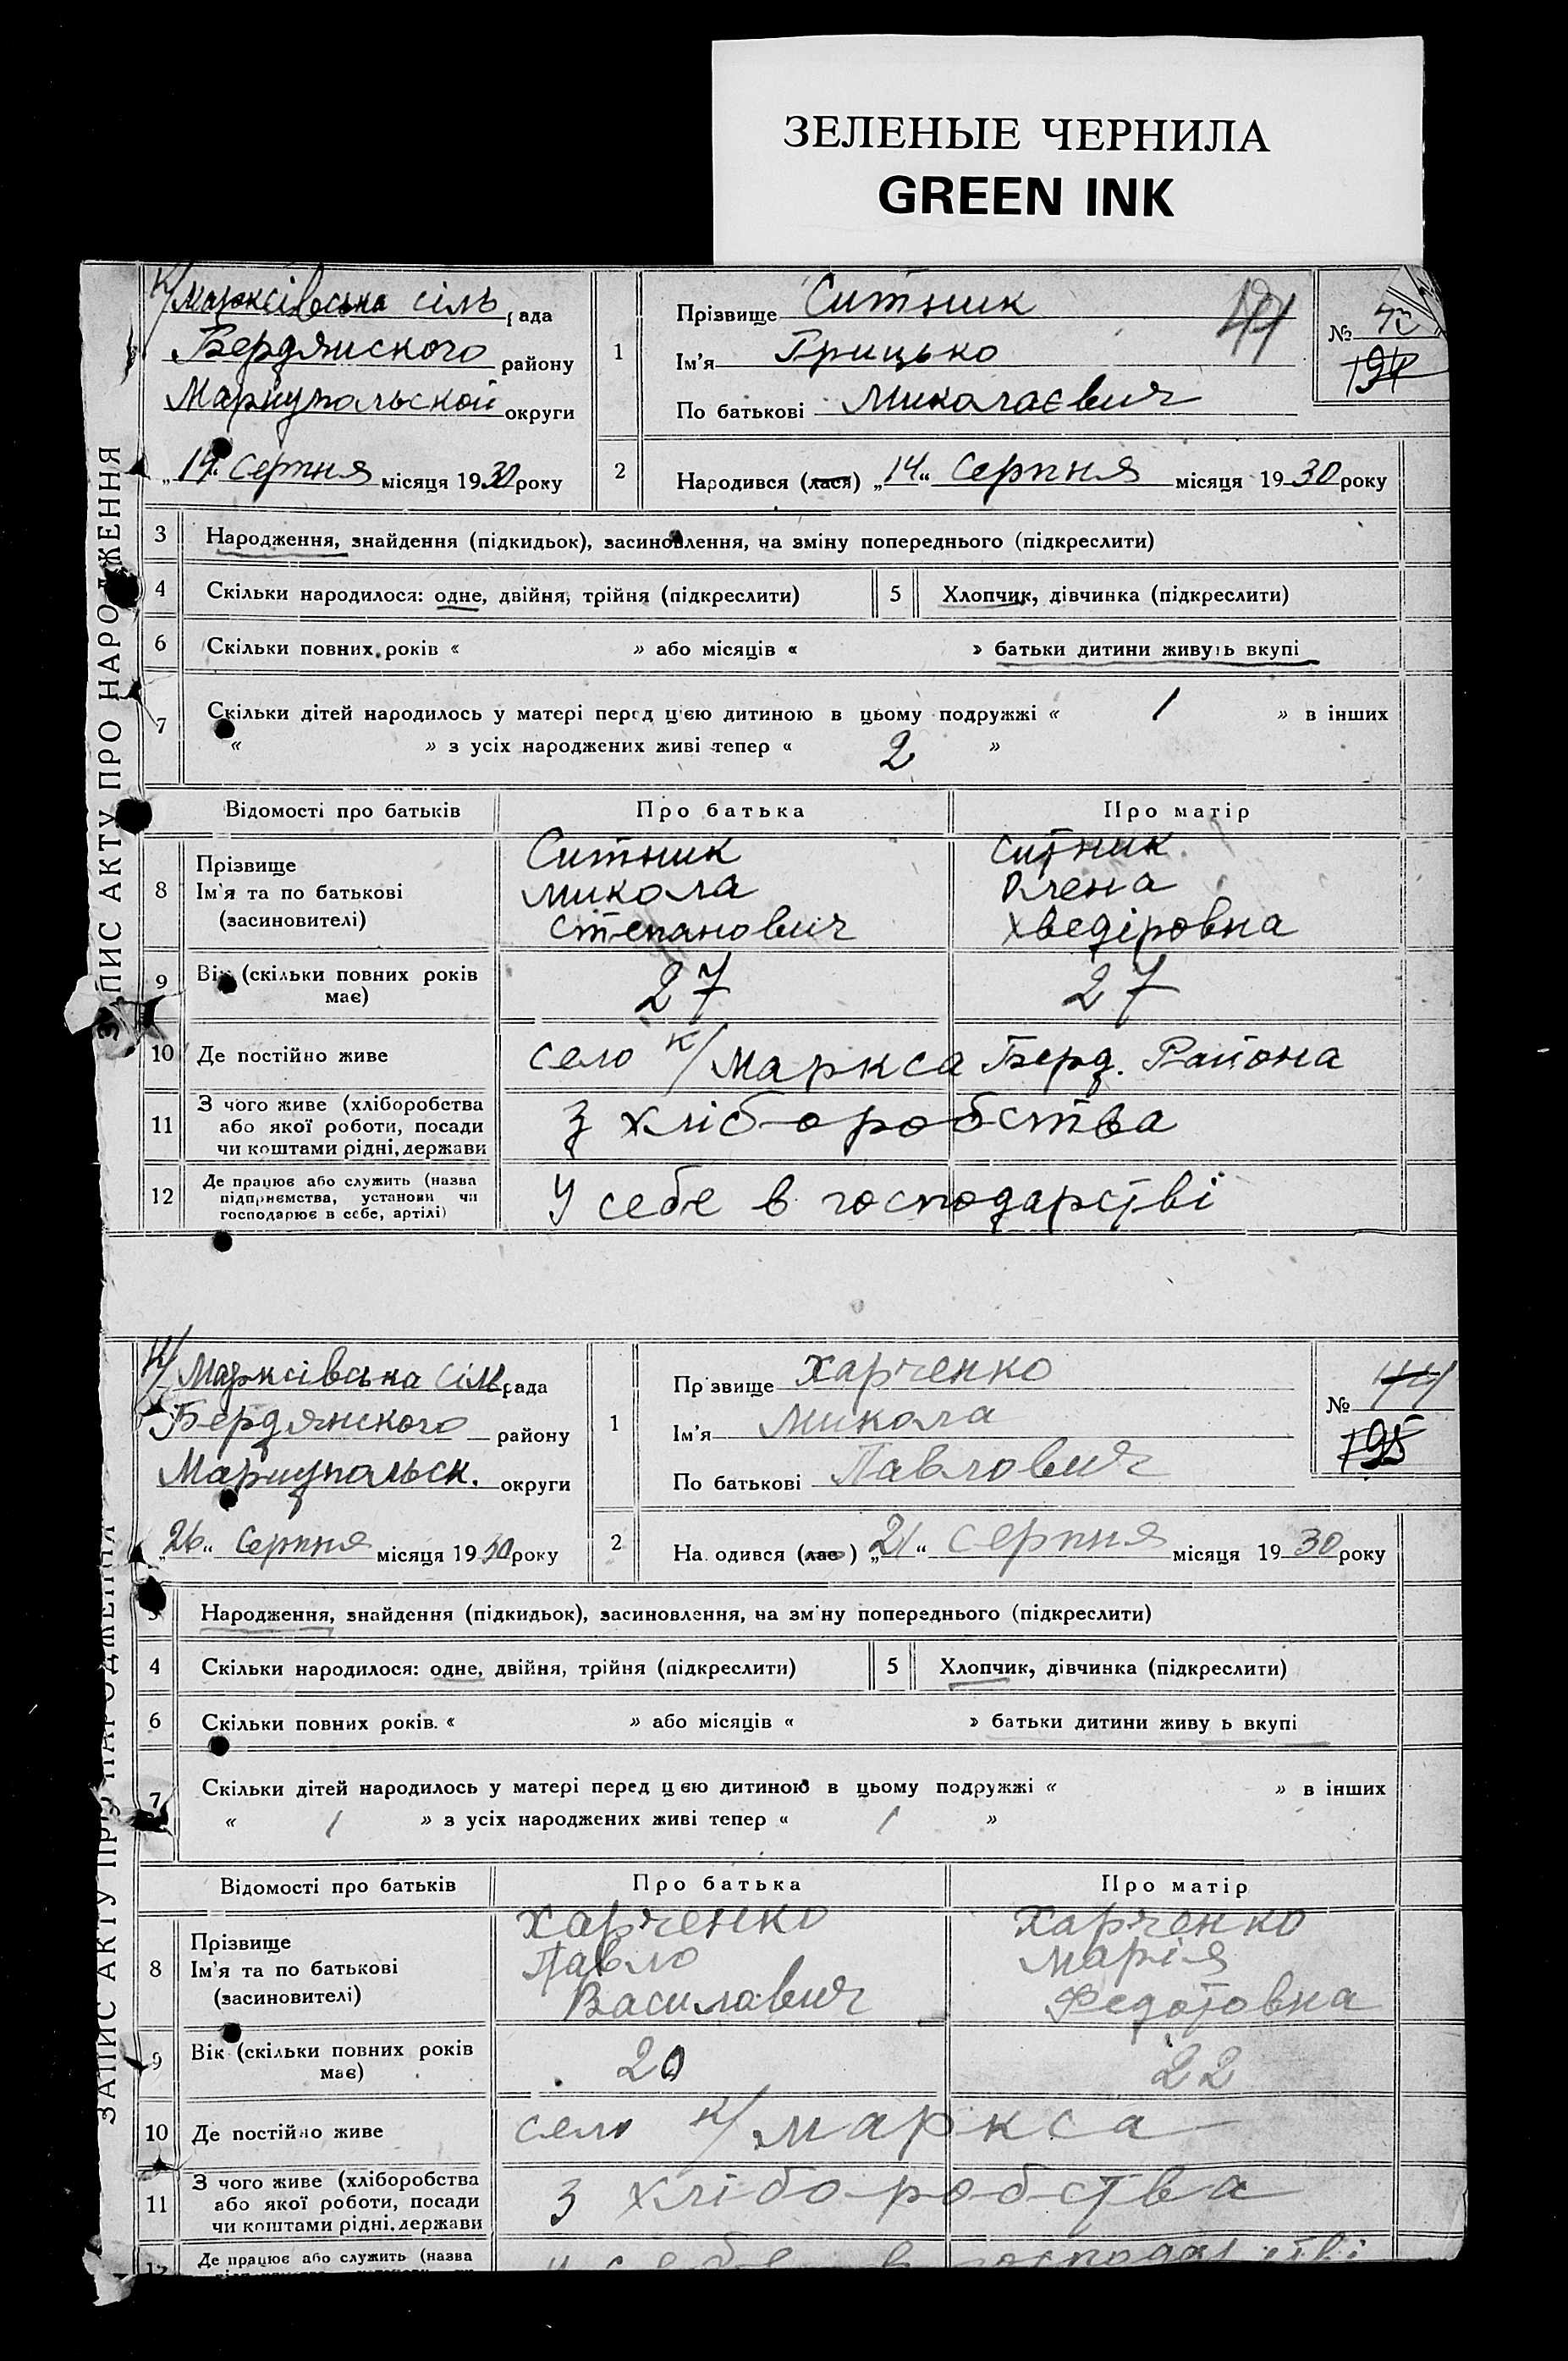 ЗЕЛЕНЫЕ ЧЕРНИЛА
GREEN INK
ЗАПИС АКТУ ПРО НАРОДЖЕННЯ
К/Марксівська сільрада
Бердянского району
Мариупольской округи
„14“ Серпня місяця 1930 року
1
Прізвище Ситник
Ім'я Грицько
По батькові Миколаєвич
44
№ 43
194
2
Народився (лася) „14“ Серпня місяця 1930 року
3 Народження, знайдення (підкидьок), засиновлення, на зміну попереднього (підкреслити)
4 Скільки народилося: одне, двійня, трійня (підкреслити) 5 Хлопчик, дівчинка (підкреслити)
6 Скільки повних років « » або місяців « » батьки дитини живуть вкупі
7 Скільки дітей народилось у матері перед цією дитиною в цьому подружжі « 1 » в інших
« » з усіх народжених живі тепер « 2 »
Відомості про батьків Про батька Про матір
8 Прізвище Ситник Ситник
Ім'я та по батькові Микола Олена
(засиновителі) Степанович Хведіровна
9 Вік (скільки повних років має) 27 27
10 Де постійно живе село К/Маркса Берд. Района
11 З чого живе (хліборобства
або якої роботи, посади
чи коштами рідні, держави
З хліборобства
12 Де працює або служить (назва
підприємства, установи чи
господарює в себе, артілі)
У себе в господарстві
ЗАПИС АКТУ ПРО НАРОДЖЕННЯ
К/Марксівська сільрада
Бердянского району
Мариупольск. округи
„26“ Серпня місяця 1930 року
1
Прізвище Харченко
Ім'я Микола
По батькові Павлович
№ 44
195
2
Народився (лас ) „21“ Серпня місяця 1930 року
3 Народження, знайдення (підкидьок), засиновлення, на зміну попереднього (підкреслити)
4 Скільки народилося: одне, двійня, трійня (підкреслити) 5 Хлопчик, дівчинка (підкреслити)
6 Скільки повних років « » або місяців « » батьки дитини живуть вкупі
7 Скільки дітей народилось у матері перед цією дитиною в цьому подружжі « » в інших
« 1 » з усіх народжених живі тепер « 1 »
Відомості про батьків Про батька Про матір
8 Прізвище Харченко Харченко
Ім'я та по батькові Павло Марія
(засиновителі) Василавич Федотовна
9 Вік (скільки повних років має) 20 22
10 Де постійно живе село К/Маркса
11 З чого живе (хліборобства
або якої роботи, посади
чи коштами рідні, держави
З хліборобства
12 Де працює або служить (назва
у себе в господарстві